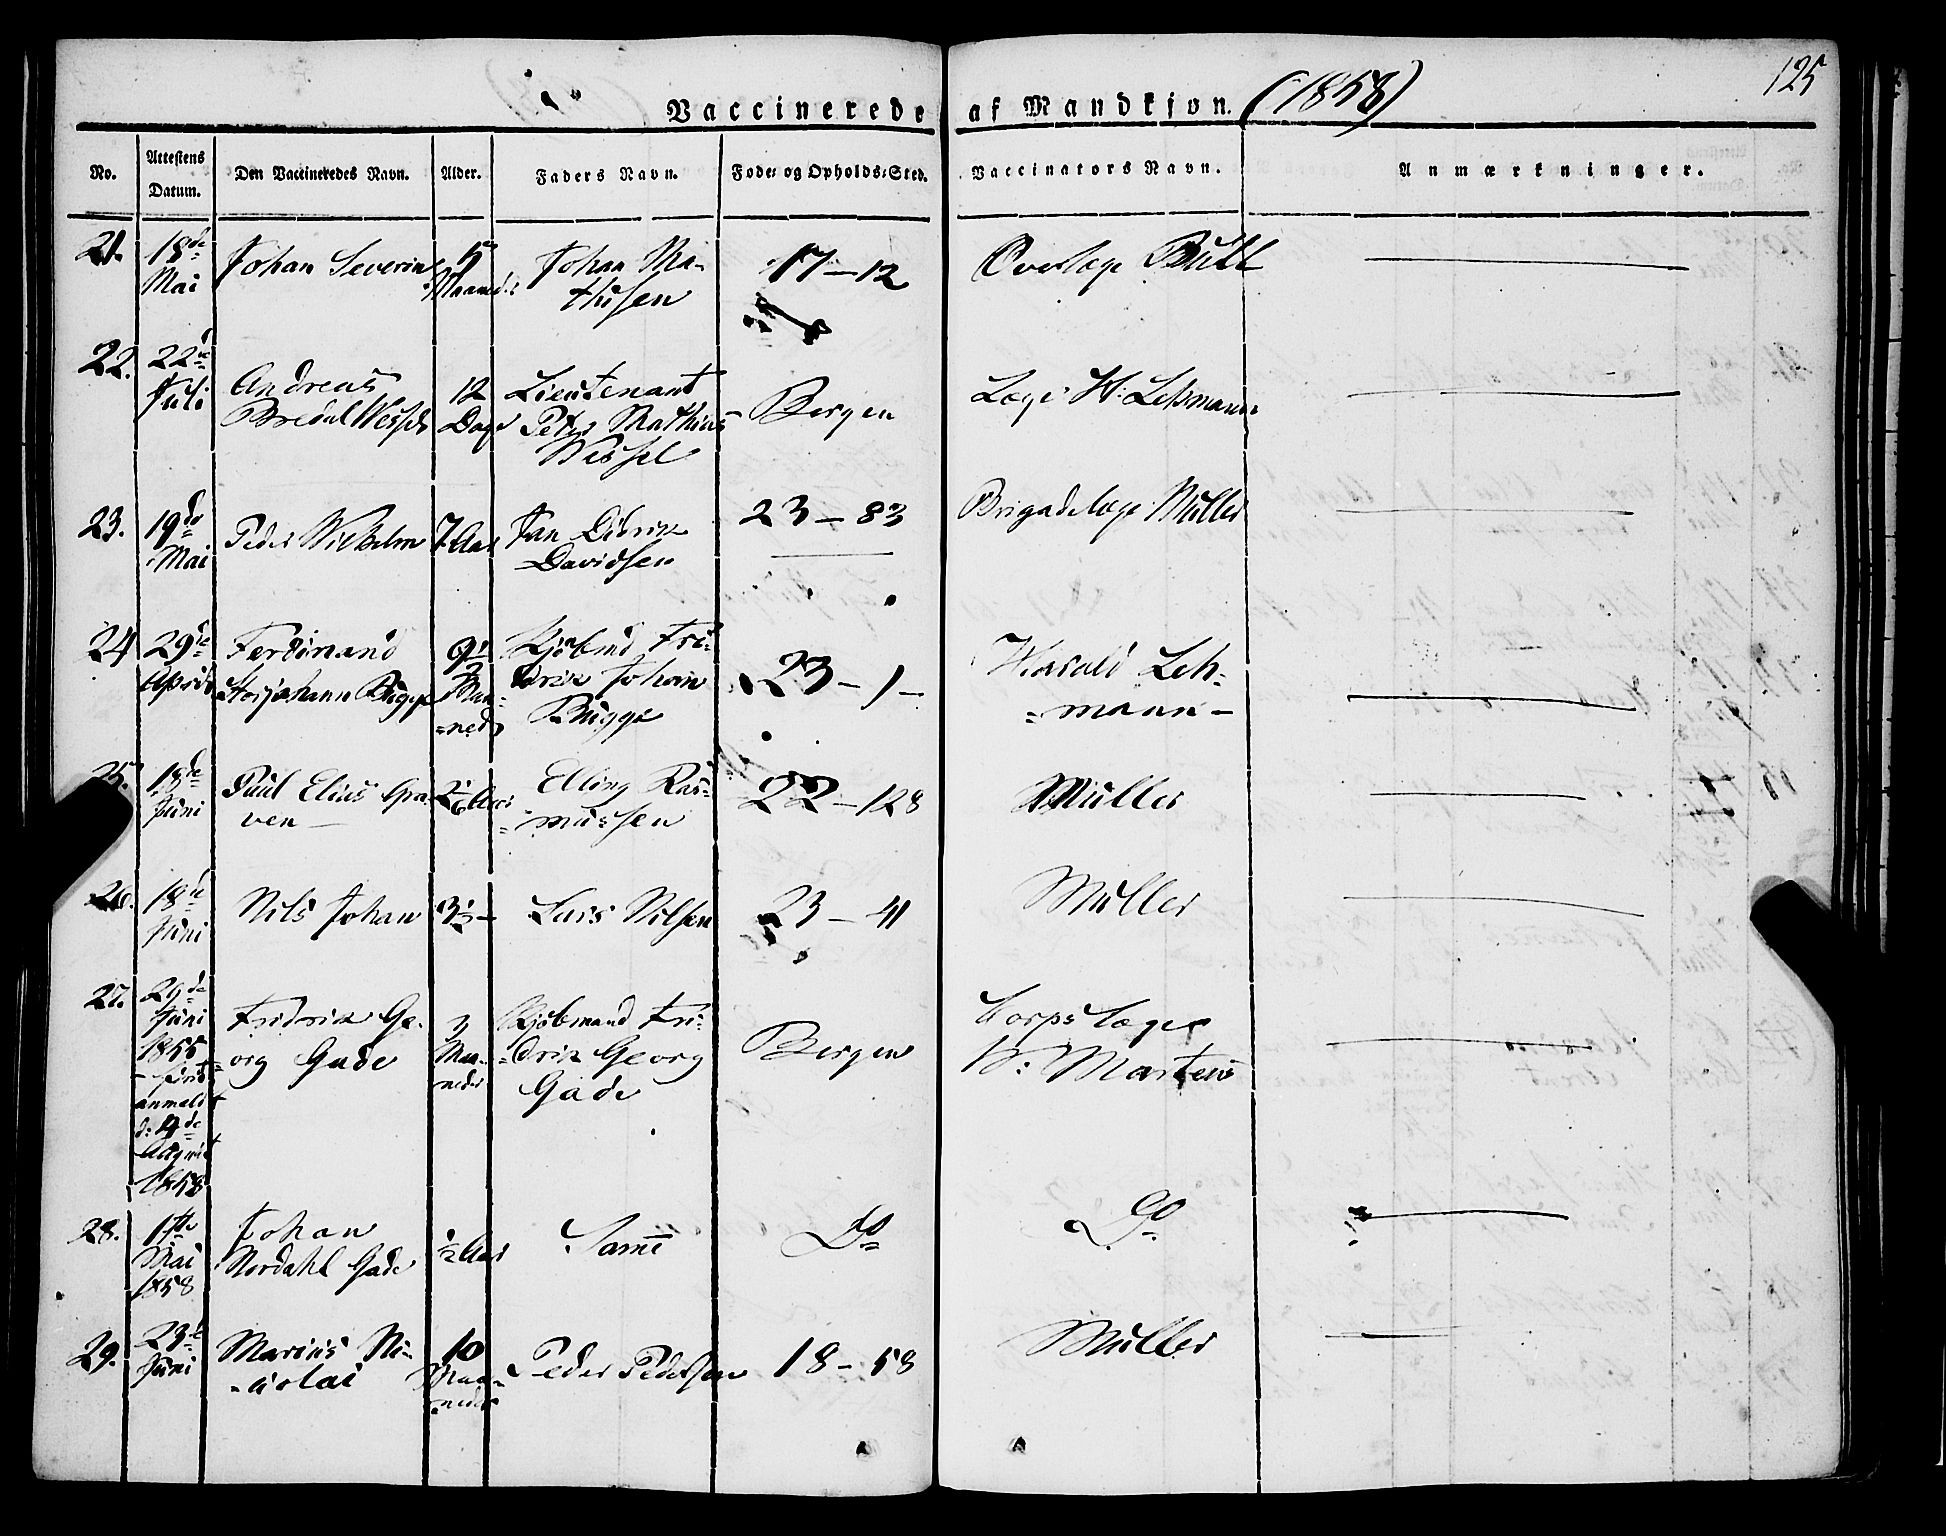 125
Vaccinerede af Mandkjøn. (1858)
No. Attestens Datum. Den Vaccineredes Navn. Alder. Faders Navn. Føde- og Opholds-Sted. Vaccinators Navn. Anmærkninger.
21. 18de Mai Johan Severin 5 Maaneder Johan Ma-
thisen 17 – 12 Overlæge Bull
22. 22de Juli Andreas
Bredal Wessel 12 Dage Lieutenant
Peter Mathias
Wessel Bergen Læge H. Lehmann
23. 19de Mai Peder Wilhelm 7 Aar Jan Didrik
Davidsen 23 – 83 Brigadelæge Müller
24 29de April Ferdinand
Bugge 9½ Maa-
=neder Kjøbmd Fri-
drik Johan
Bugge 23 – 1 – Harald Leh-
=mann –
25. 18de Juni Paul Elias Gra-
ven 2½ Aar Elling Ras-
=mussen 22 – 128 Müller
26. 18de Juni Nils Johan 3½ – Lars Nilsen 23 – 41 Müller
27. 29de
Juni
1855
– først
anmeldt
d: 4de
August
1858 Fridrik Ge-
=org Gade 3
Maa-
neder Kjøbmand Fri-
=drik Georg
Gade Bergen Corpslæge
W: Martens
28. 17de
Mai
1858 Johan
Nordahl Gade ½ Aar Samme Do Do
29. 23de
Juni Marius Ni-
=colai 10
Maa-
neder Peder Pedersen 18 – 58 Müller